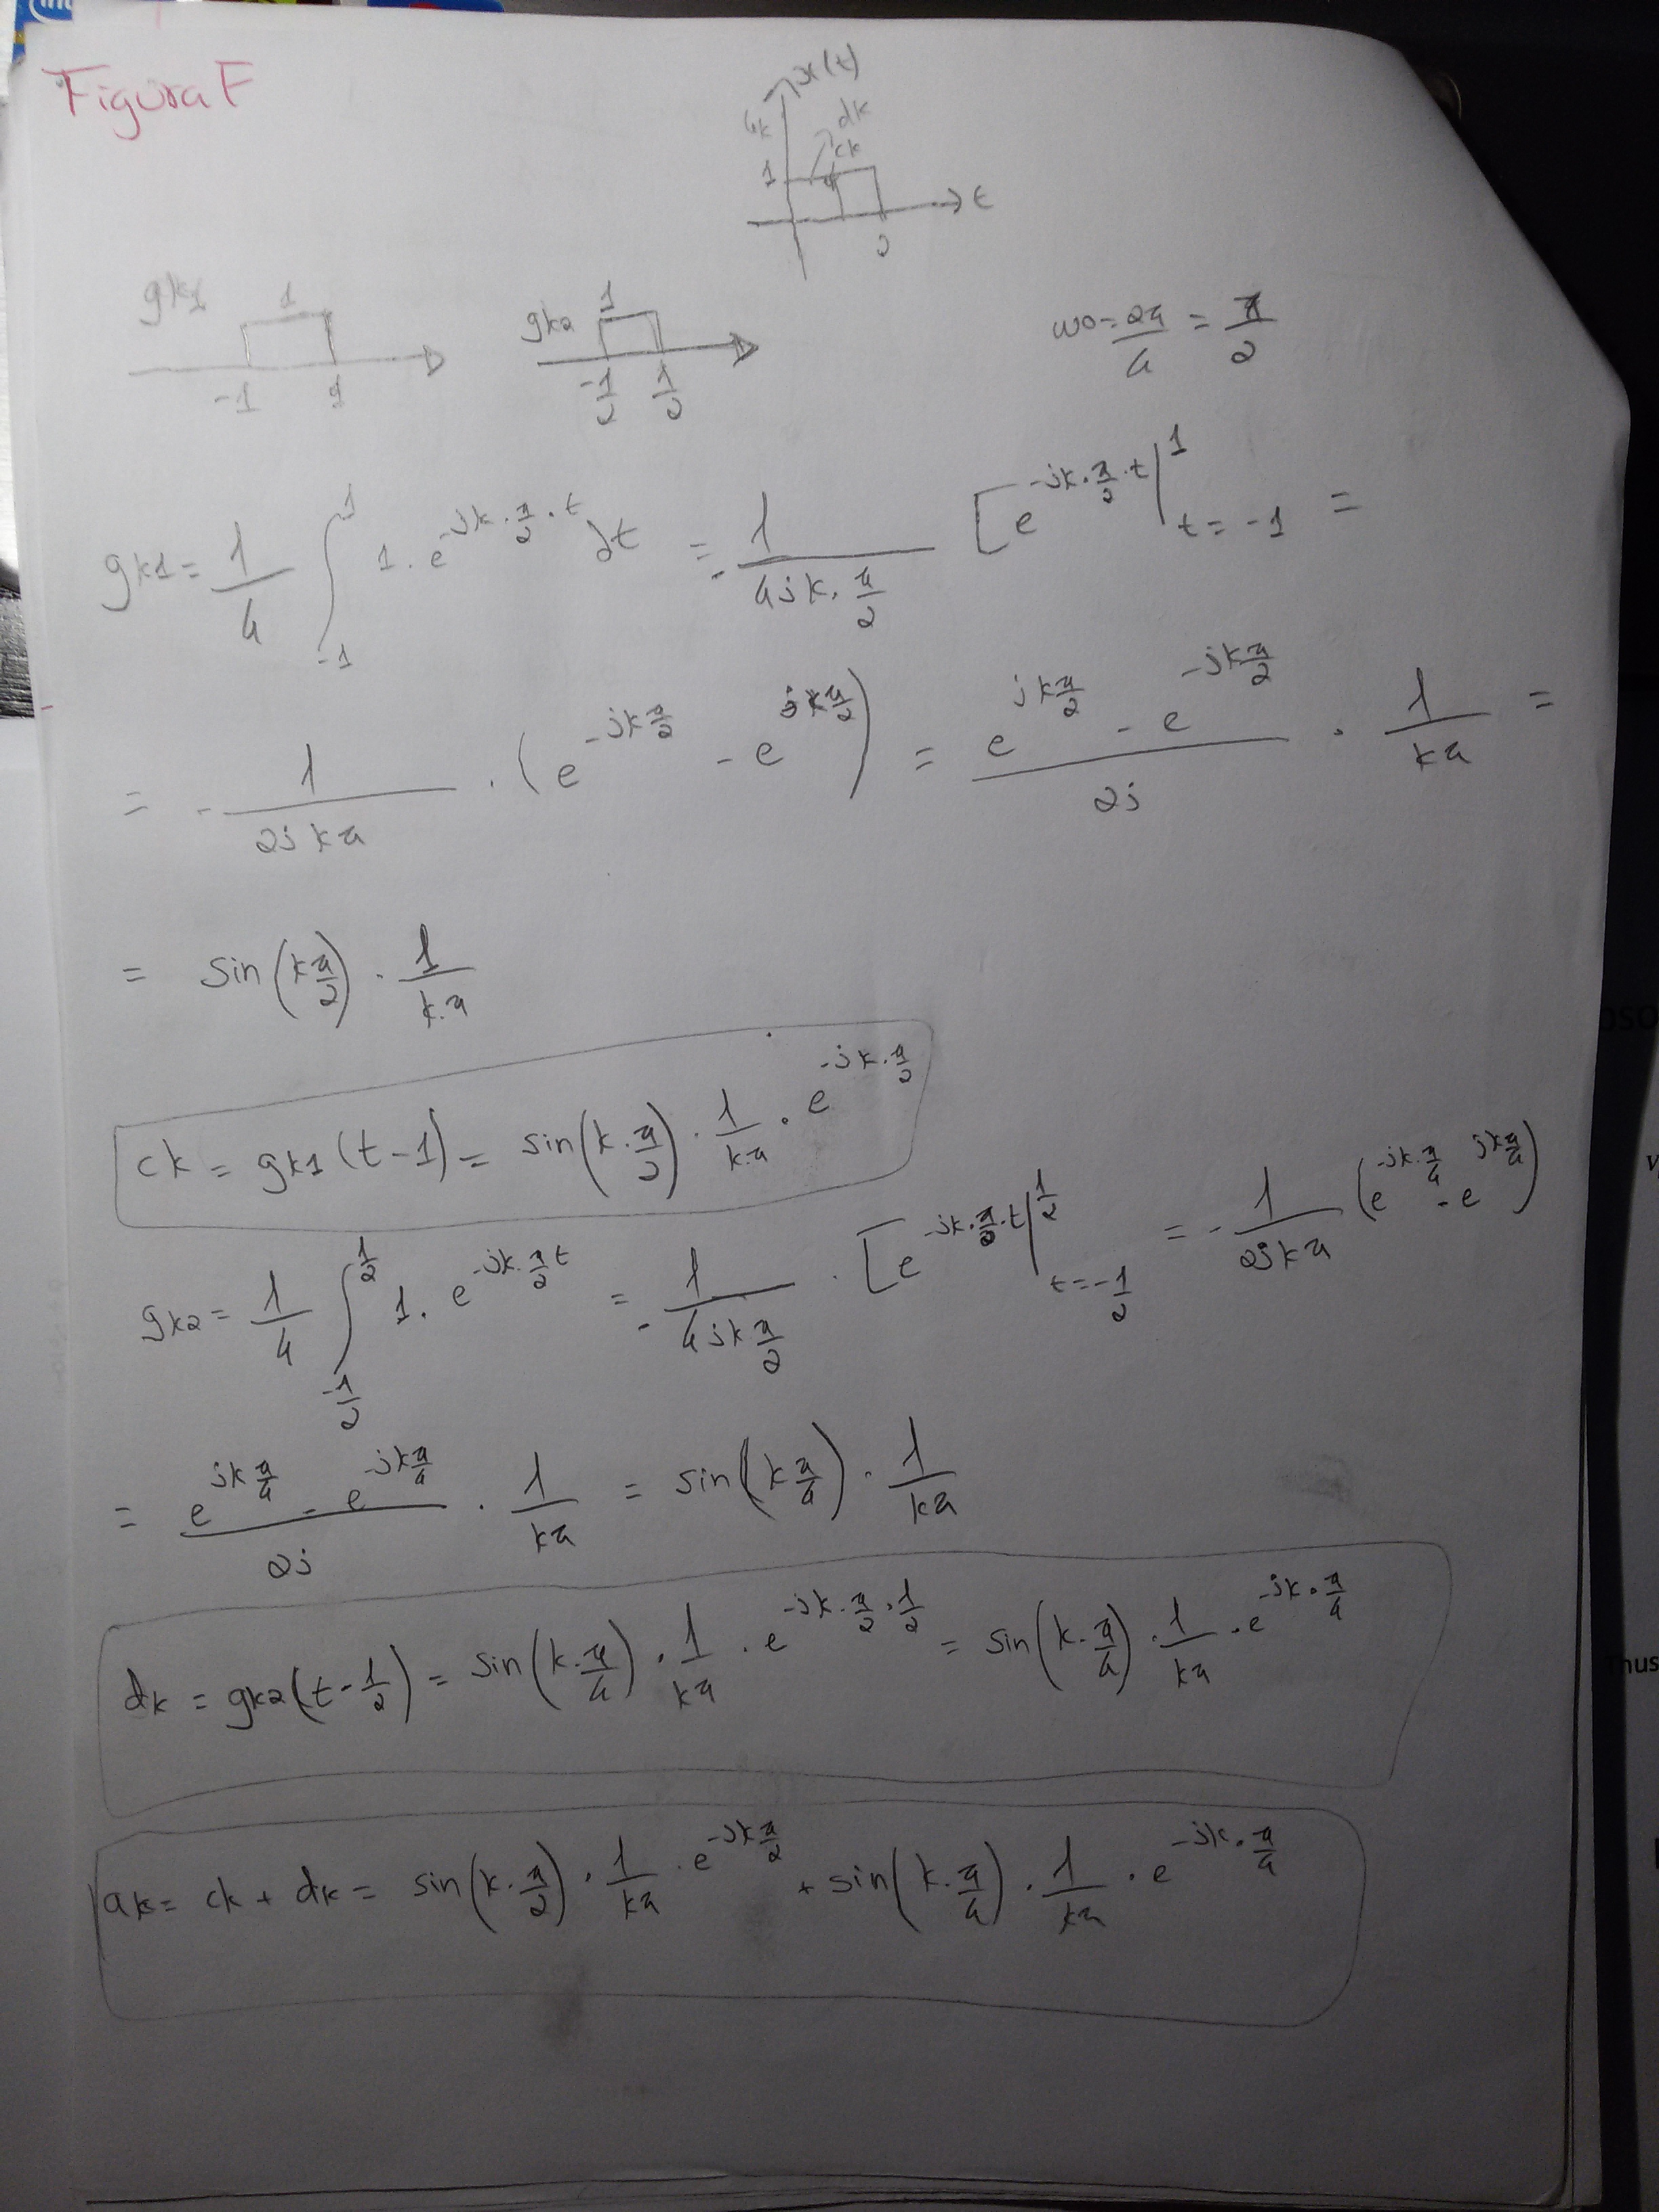 Figura F
x(t)
dk
ck
1
t
2
gk1
1
-1 1
gk2
1
-1/2 1/2
ω0 = 2π/4 = π/2
gk1 = 1/4 ∫_{-1}^{1} 1 · e^{-jk·π/2·t} dt = -1/(4jk·π/2) [e^{-jk·π/2·t} |_{t=-1}^{1} =
= -1/(2jkπ) · (e^{-jkπ/2} - e^{jkπ/2}) = (e^{jkπ/2} - e^{-jkπ/2})/2j · 1/kπ =
= sin(kπ/2) · 1/k·π
ck = gk1(t-1) = sin(k·π/2) · 1/kπ · e^{-jk·π/2}
gk2 = 1/4 ∫_{-1/2}^{1/2} 1 · e^{-jk·π/2 t} = -1/(4jkπ/2) · [e^{-jk·π/2·t} |_{t=-1/2}^{1/2} = -1/(2jkπ) (e^{-jk·π/4} - e^{jkπ/4})
= (e^{jkπ/4} - e^{-jkπ/4})/2j · 1/kπ = sin(kπ/4) · 1/kπ
dk = gk2(t-1/2) = sin(k·π/4) · 1/kπ · e^{-jk·π/2·1/2} = sin(k·π/4) · 1/kπ · e^{-jk·π/4}
ak = ck + dk = sin(k·π/2) · 1/kπ · e^{-jkπ/2} + sin(k·π/4) · 1/kπ · e^{-jk·π/4}